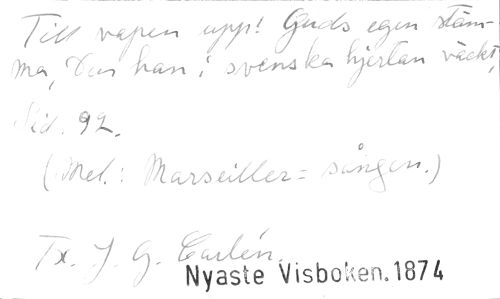 Till vapen upp! Guds egen stäm-
ma, Den han i svenska hjertan väckt,
Sid. 92.
(Mel.: Marseiller= sången.)
Tx. J. G. Carlén.
Nyaste Visboken. 1874